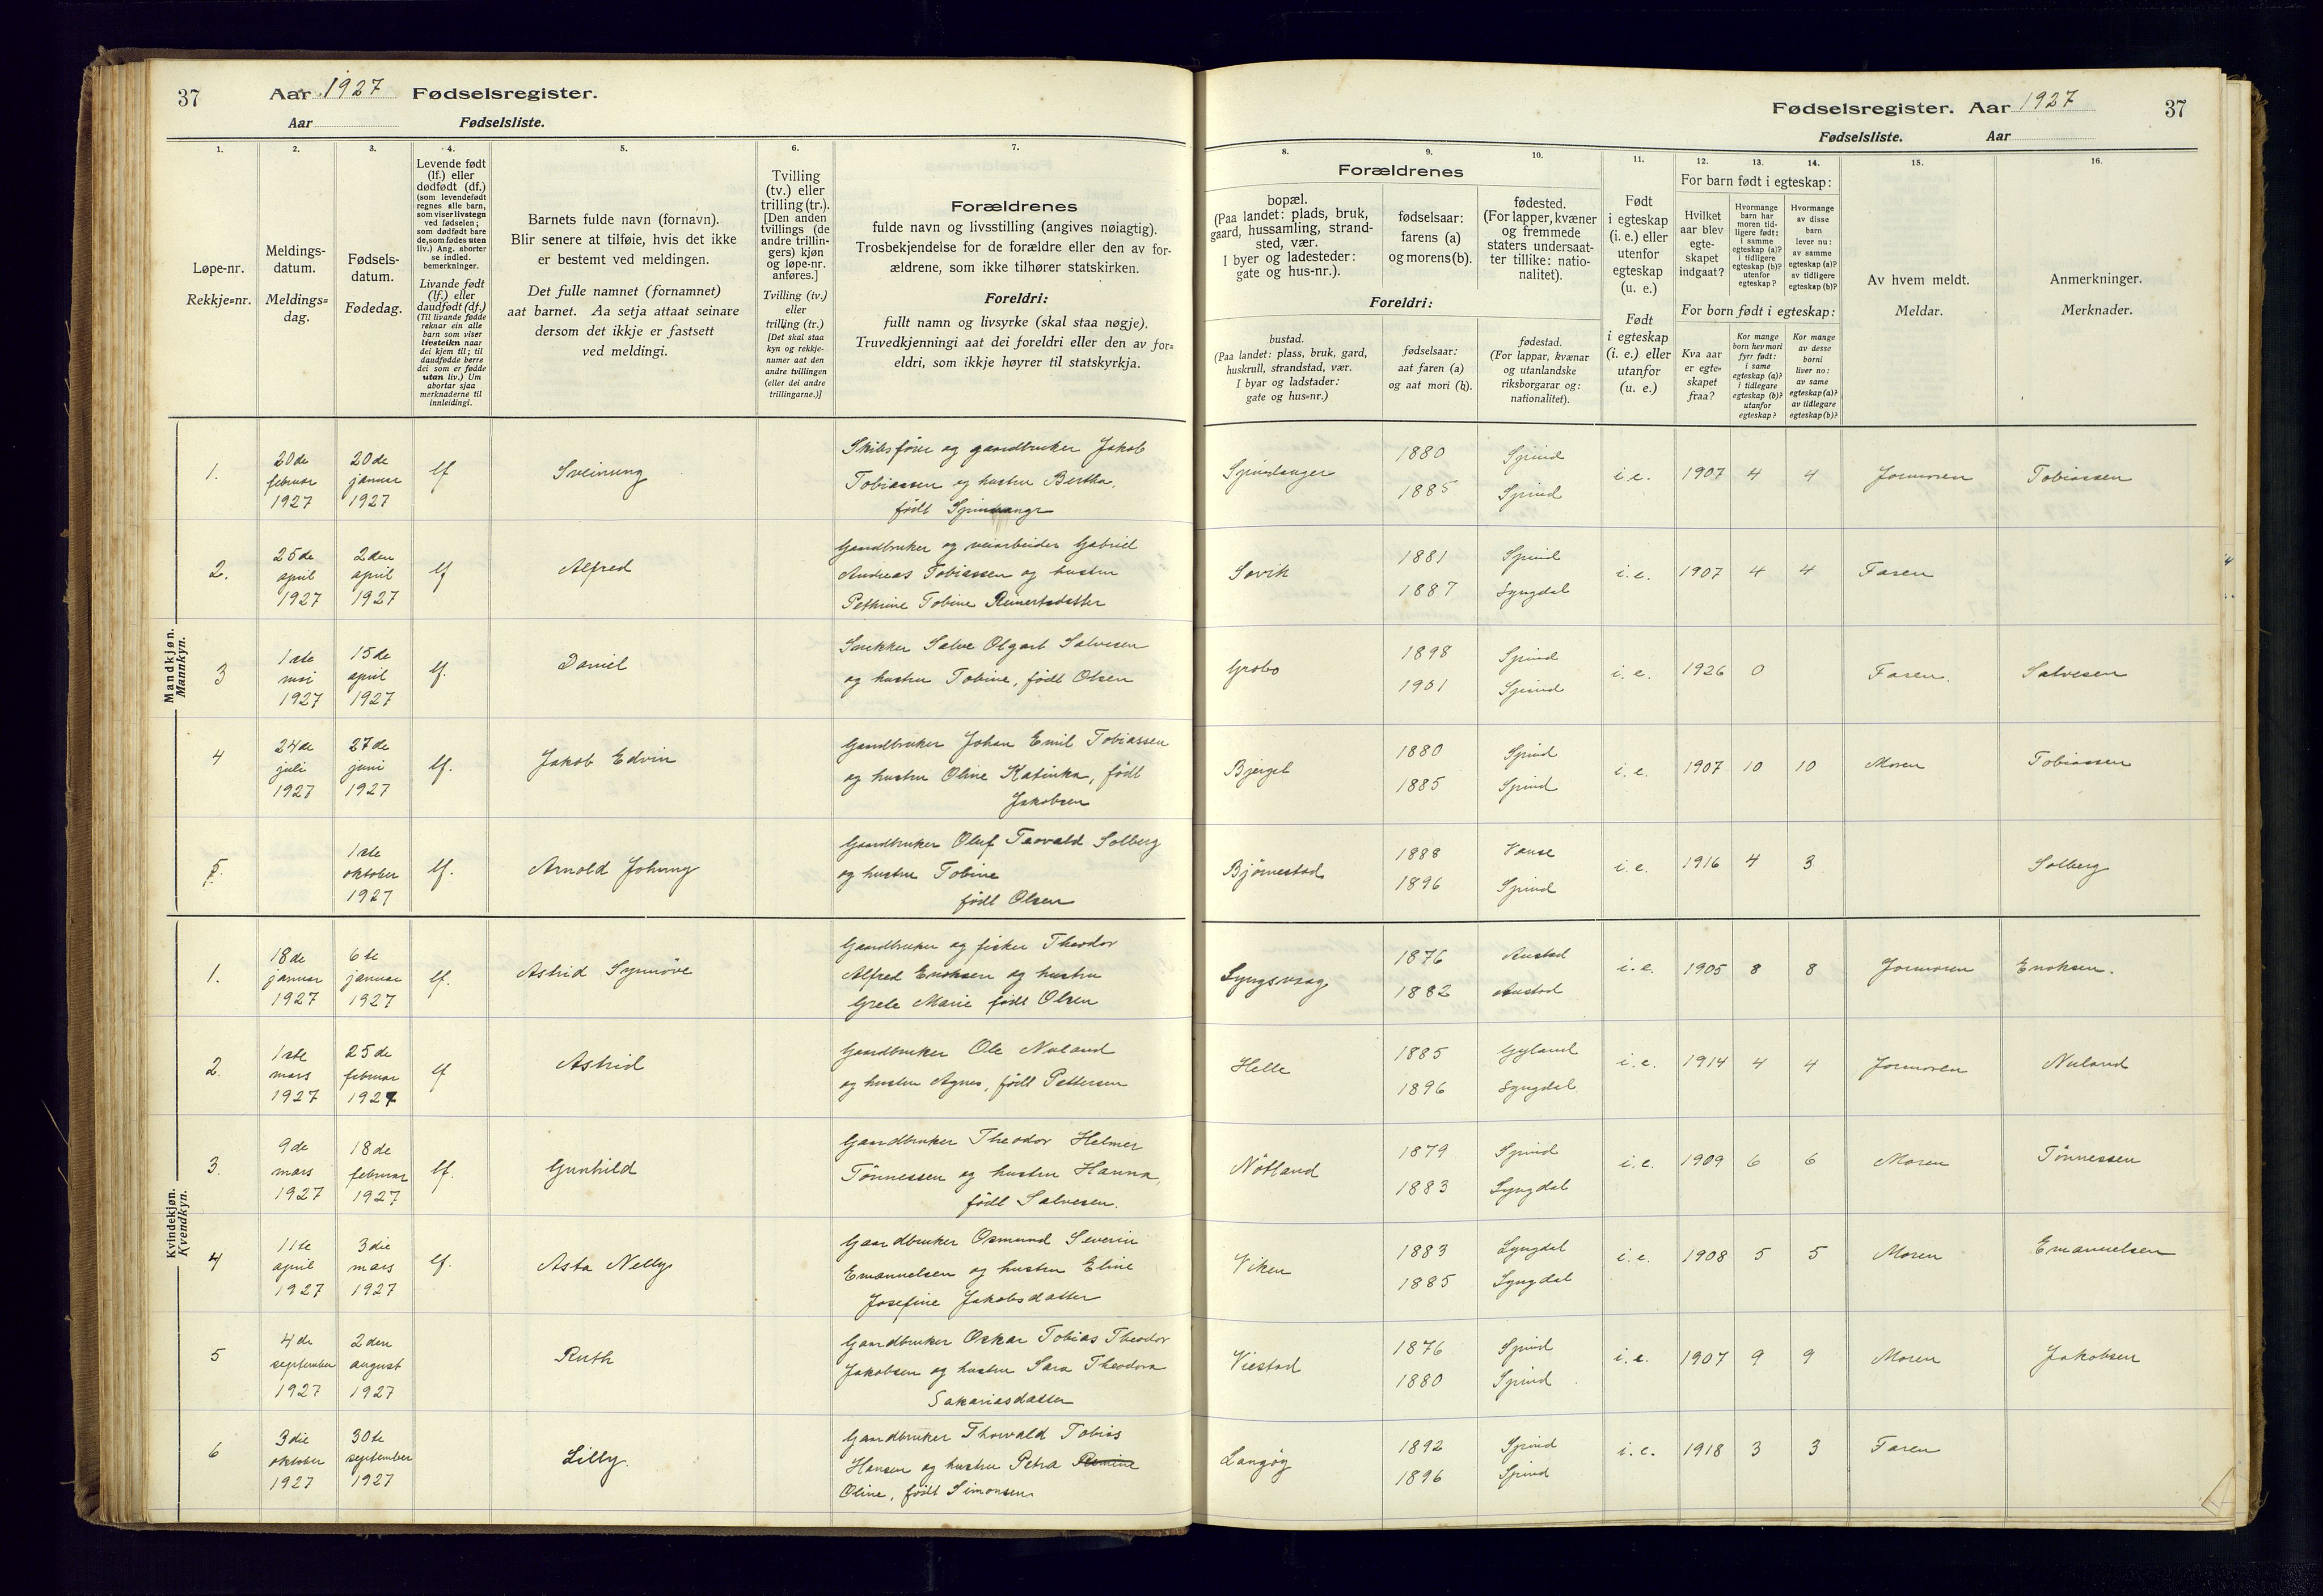 37
Aar 1927 Fødselsregister.
Aar Fødselsliste.
1.
2.
3.
4.
5.
6.
7.
Løpe-nr.
Rekkje=nr.
Meldings-
datum.
Meldings=
dag.
Fødsels-
datum.
Fødedag.
Levende født
(lf.) eller
dødfødt (df.)
(som levendefødt
regnes alle barn,
som viser livstegn
ved fødselen;
som dødfødt bare
de, som fødes uten
liv.) Ang. aborter
se indled.
bemerkninger.
Livande født
(lf.) eller
daudfødt (df.)
(Til livande fødde
reknar ein alle
barn som viser
livsteikn naar
dei kjem til; til
daudfødde berre
dei som er fødde
utan liv.) Um
abortar sjaa
merknaderne til
innleidingi.
Barnets fulde navn (fornavn).
Blir senere at tilføie, hvis det ikke
er bestemt ved meldingen.
Det fulle namnet (fornamnet)
aat barnet. Aa setja attaat seinare
dersom det ikkje er fastsett
ved meldingi.
Tvilling
(tv.) eller
trilling (tr.).
[Den anden
tvillings (de
andre trillin-
gers) kjøn
og løpe-nr.
anføres.]
Tvilling (tv.)
eller
trilling (tr.)
[Det skal staa
kyn og rekkje-
numer aat den
andre tvillingen
(eller dei andre
trillingarne.)]
Forældrenes
fulde navn og livsstilling (angives nøiagtig).
Trosbekjendelse for de forældre eller den av for-
ældrene, som ikke tilhører statskirken.
Foreldri:
fullt namn og livsyrke (skal staa nøgje).
Truvedkjenningi aat dei foreldri eller den av for=
eldri, som ikkje høyrer til statskyrkja.
Mandkjøn.
Mannkyn.
1.
20de
februar
1927
20de
januar
1927
lf
Sveinung
Skibsfører og gaardbruker Jakob
Tobiassen og hustru Bertha,
født
2.
25de
april
1927
2den
april
1927
lf
Alfred
Gaardbruker og veiarbeider Gabriel
Andreas Tobiassen og hustru
Pethrine Tobine Reinertsdatter
3
1ste
mai
1927
15de
april
1927
lf.
Daniel
Snekker Salve Olgart Salvesen
og hustru Tobine, født Olsen
4
24de
juli
1927
27de
juni
1927
lf.
Jakob Edvin
Gaardbruker Johan Emil Tobiassen
og hustru Oline Katinka, født
Jakobsen
5.
1ste
oktober
1927
lf.
Arnold Johnny
Gaardbruker Oluf Torvald Solberg
og hustru Tobine
født Olsen
Kvindekjøn.
Kvendkyn.
1.
18de
januar
1927
6te
januar
1927
lf.
Astrid Synnöve
Gaardbruker og fisker Theodor
Alfred Enoksen og hustru
Grete Marie født Olsen
2.
1ste
mars
1927
25de
februar
1927
lf
Astrid
Gaardbruker Ole Nuland
og hustru Agnes, født Pettersen
3.
9de
mars
1927
18de
februar
1927
lf.
Gunhild
Gaardbruker Theodor Helmer
Tönnessen og hustru Hanna,
født Salvesen.
4
11te
april
1927
3die
mars
1927
lf.
Asta Nelly
Gaardbruker Osmund Severin
Emanuelsen og hustru Eline
Josefine Jakobsdatter
5
4de
september
1927
2den
august
1927
Ruth
Gaardbruker Oskar Tobias Theodor
Jakobsen og hustru Sara Theodora
Sakariasdatter
6
3die
oktober
1927
30te
september
1927
Lilly.
Gaardbruker Thorvald Tobias
Hansen og hustru Petra
Oline, født Simonsen
Fødselsregister. Aar 1927
37
Fødselsliste. Aar
8.
9.
10.
11.
12.
13.
14.
15.
16.
Forældrenes
bopæl.
(Paa landet: plads, bruk,
gaard, hussamling, strand-
sted, vær.
I byer og ladesteder:
gate og hus-nr.).
fødselsaar:
farens (a)
og morens (b).
fødested.
(For lapper, kvæner
og fremmede
staters undersaat-
ter tillike: natio-
nalitet).
Foreldri:
bustad.
(Paa landet: plass, bruk, gard,
huskrull, strandstad, vær.
I byar og ladstader:
gate og hus=nr.)
fødselsaar:
aat faren (a)
og aat mori (b).
fødestad.
(For lappar, kvænar
og utanlandske
riksborgarar og:
nationalitet).
Født
i egteskap
(i. e.) eller
utenfor
egteskap
(u. e.)
Født
i egteskap
(i. e.) eller
utanfor
(u. e.)
For barn født i egteskap:
Hvilket
aar blev
egte-
skapet
indgaat?
Hvormange
barn har
moren tid-
ligere født:
i samme
egteskap (a)?
i tidligere
egteskap (b)?
utenfor
egteskap?
Hvormange
av disse
barn
lever nu:
av samme
egteskap (a)?
av tidligere
egteskap (b)?
For born født i egteskap:
Kva aar
er egte=
skapet
fraa?
Kor mange
born hev mori
fyrr født:
i same
egteskap (a)?
i tidlegare
egteskap (b)?
utanfor
egteskap?
Kor mange
av desse
borni
liver no:
av same
egteskap (a)?
av tidlegare
egteskap (b)?
Av hvem meldt.
Meldar.
Anmerkninger.
Merknader.
Spindsanger
1880
1885
Spind
Spind
i. e. 1907 4 4 Jormoren Tobiassen
Sövik
1881
1887
Spind
Lyngdal
i. e. 1907 4 4 Faren
Grobo
1898
1901
Spind
Spind
i. e. 1926 0 Faren. Salvesen
Bjerget
1880
1885
Spind
Spind
i. e. 1907 10 10 Moren Tobiassen
Björnestad
1888
1896
Vanse
Spind
i. e. 1916 4 3 Solberg
Lyngsvaag
1876
1882
Austad
Austad
i. e. 1905 8 8 Jormoren Enoksen.
Helle
1885
1896
Gyland
Lyngdal
i. e. 1914 4 4 Jormoren Nuland
Nötland
1879
1883
Spind
Lyngdal
i. e. 1909 6 6 Moren Tönnessen
Viken
1883
1885
Lyngdal
Lyngdal
i. e. 1908 5 5 Moren Emanuelsen
Viestad
1876
1880
Spind
Spind
i. e. 1907 9 9 Moren Jakobsen
Langöy
1892
1896
Spind
Spind
i. e. 1918 3 3 Faren